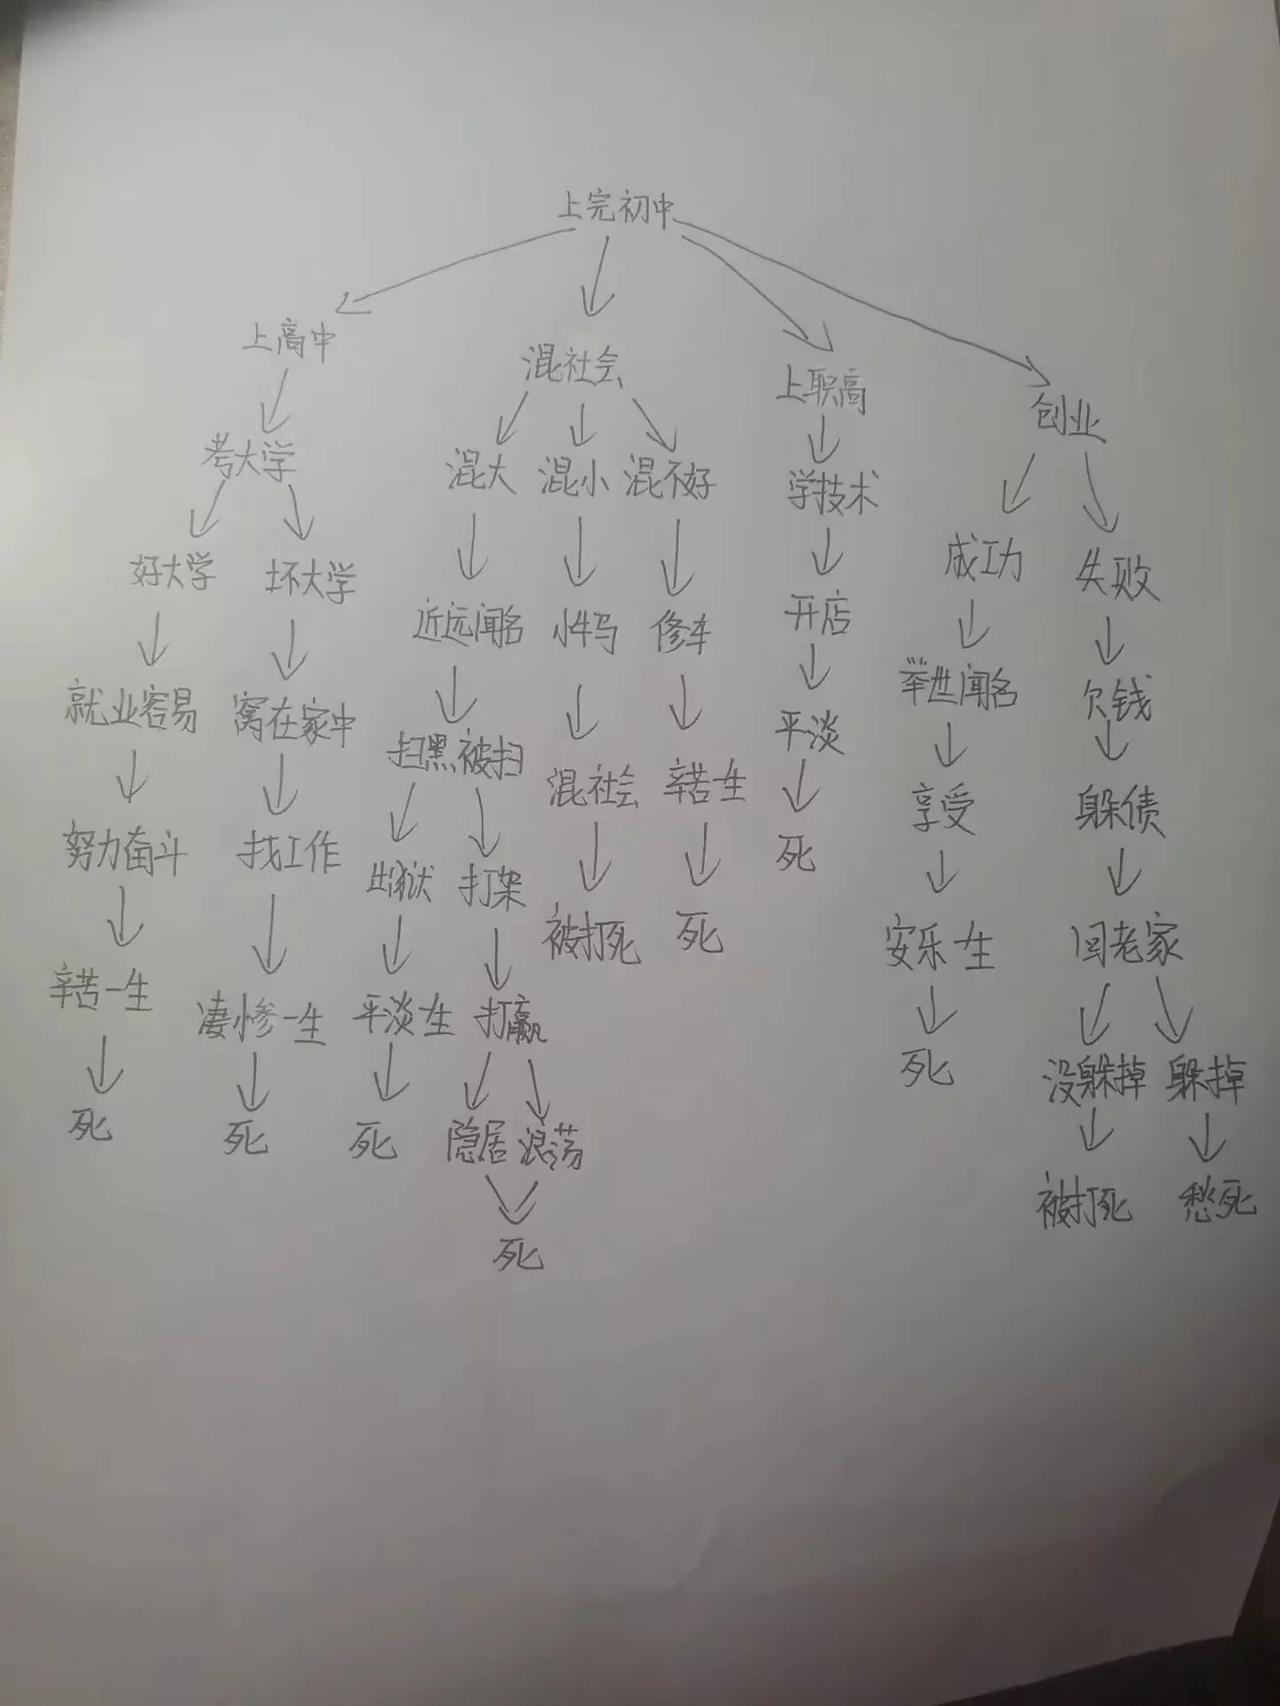 上完初中
上高中
混社会
上职高
创业
考大学
混大 混小 混不好
学技术
成功 失败
好大学 坏大学
近远闻名 修车
开店
举世闻名 欠钱
就业容易 窝在家中
扫黑被扫
混社会 辛苦一生
平淡
享受 躲债
努力奋斗 找工作
出狱 打架
被打死 死
死
安乐一生 回老家
辛苦一生 凄惨一生 平淡一生 打赢
死 没躲掉 躲掉
死 死 死 隐居 浪荡
被打死 愁死
死